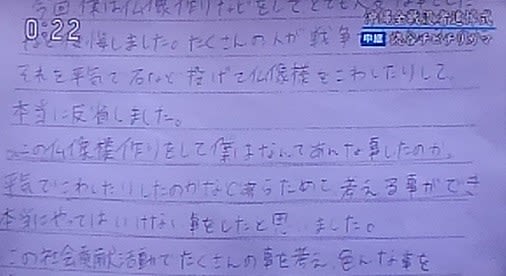 今回僕は仏像作りなどをしてとても
0:22
中継
など後悔しました。たくさんの人が戦争
それを平気で石など投げて仏像様をこわしたりして、
本当に反省しました。
この仏像様作りをして僕はなんであんな事したのか、
平気でこわしたりしたのかなど改ためて考える事ができ
本当にやってはいけない事をしたと思いました。
この社会貢献活動でたくさんの事を考え、色んな事を